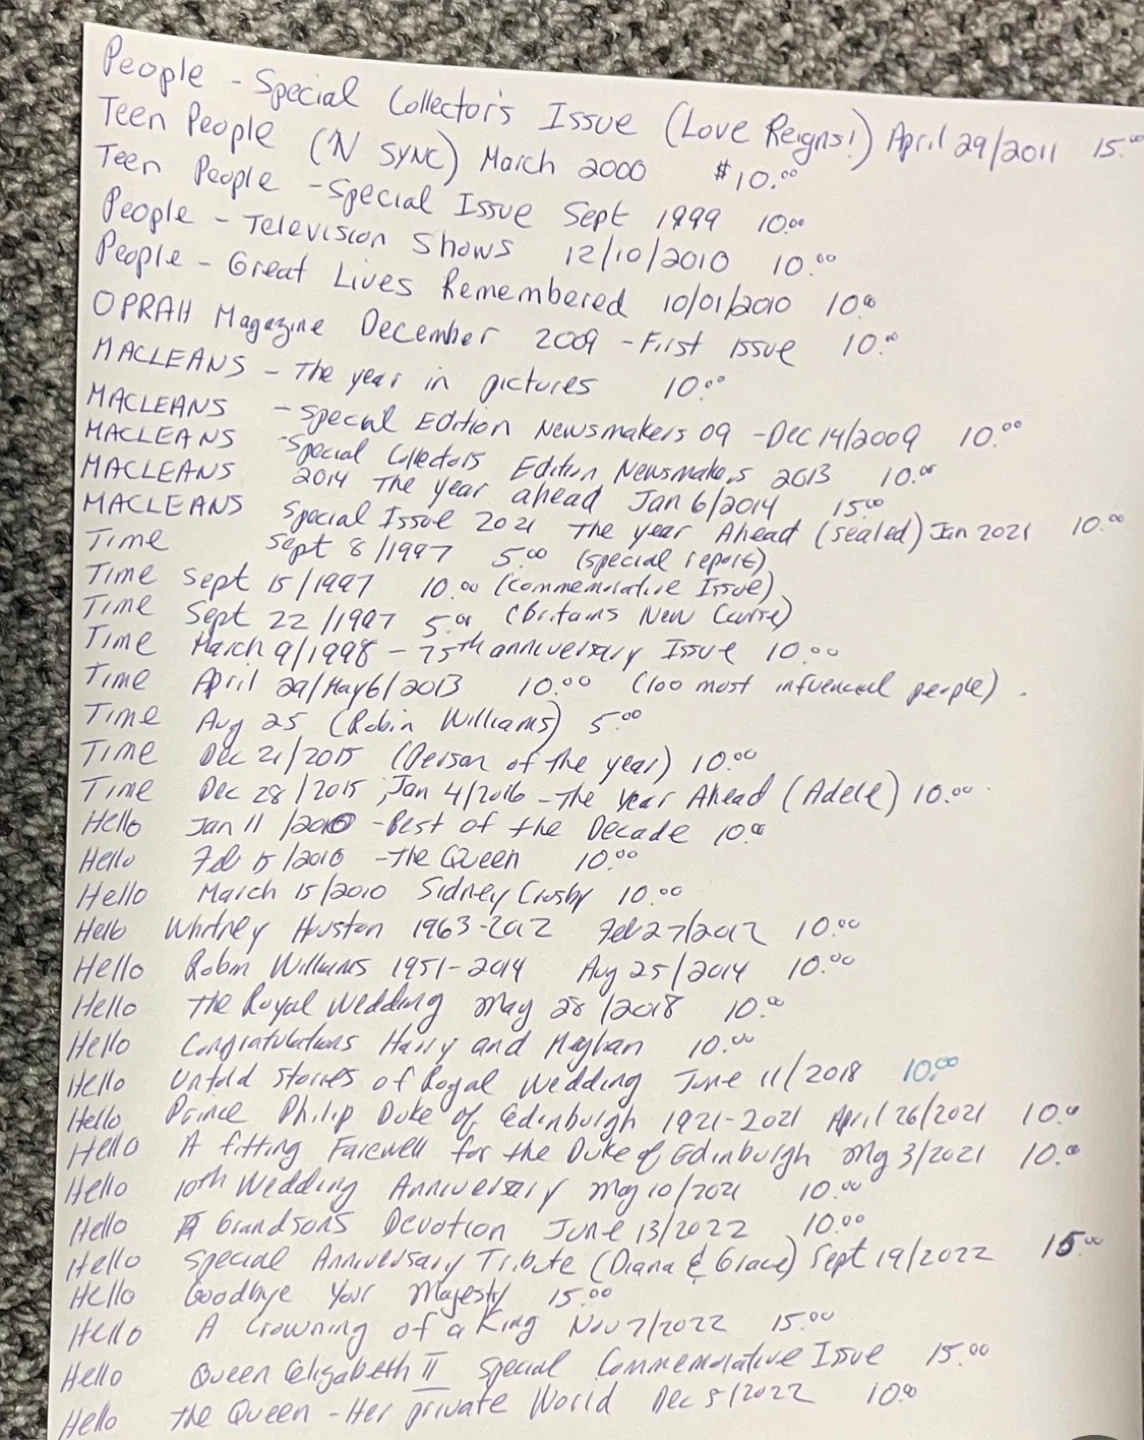 People - Special Collector's Issue (Love Reigns!) April 29/2011 15.00
Teen People (N SYNC) March 2000 $10.00
Teen People - Special Issue Sept 1999 10.00
People - Television Shows 12/10/2010 10.00
People - Great Lives Remembered 10/01/2010 10.00
OPRAH Magazine December 2009 - First issue 10.00
MACLEANS - The year in pictures 10.00
MACLEANS - Special Edition Newsmakers 09 - Dec 14/2009 10.00
MACLEANS - Special Collectors Edition Newsmakers 2013 10.00
MACLEANS 2014 The year ahead Jan 6/2014 15.00
MACLEANS Special Issue 2021 The year Ahead (sealed) Jan 2021 10.00
Time Sept 8/1997 5.00 (special report)
Time Sept 15/1997 10.00 (commemorative Issue)
Time Sept 22/1997 5.00 (Britains New)
Time March 9/1998 - 75th anniversary Issue 10.00
Time April 29/May 6/2013 10.00 (100 most influencial people).
Time Aug 25 (Robin Williams) 5.00
Time Dec 21/2015 (Person of the year) 10.00
Time Dec 28/2015, Jan 4/2016 - The Year Ahead (Adele) 10.00
Hello Jan 11/2010 - Best of the Decade 10.00
Hello Feb 15/2010 - The Queen 10.00
Hello March 15/2010 Sidney Crosby 10.00
Hello Whitney Houston 1963-2012 Feb 27/2012 10.00
Hello Robin Williams 1951-2014 Aug 25/2014 10.00
Hello The Royal Wedding May 28/2018 10.00
Hello Congratulations Harry and Meghan 10.00
Hello Untold stories of Royal Wedding June 11/2018 10.00
Hello Prince Philip Duke of Edinburgh 1921-2021 April 26/2021 10.00
Hello A fitting Farewell for the Duke of Edinburgh May 3/2021 10.00
Hello 10th Wedding Anniversary May 10/2021 10.00
Hello A Grandsons Devotion June 13/2022 10.00
Hello Special Anniversary Tribute (Diana & Grace) Sept 19/2022 15.00
Hello Goodbye Your Majesty 15.00
Hello A Crowning of a King Nov 7/2022 15.00
Hello Queen Elizabeth II Special Commemorative Issue 15.00
Hello The Queen - Her private World Dec 5/2022 10.00